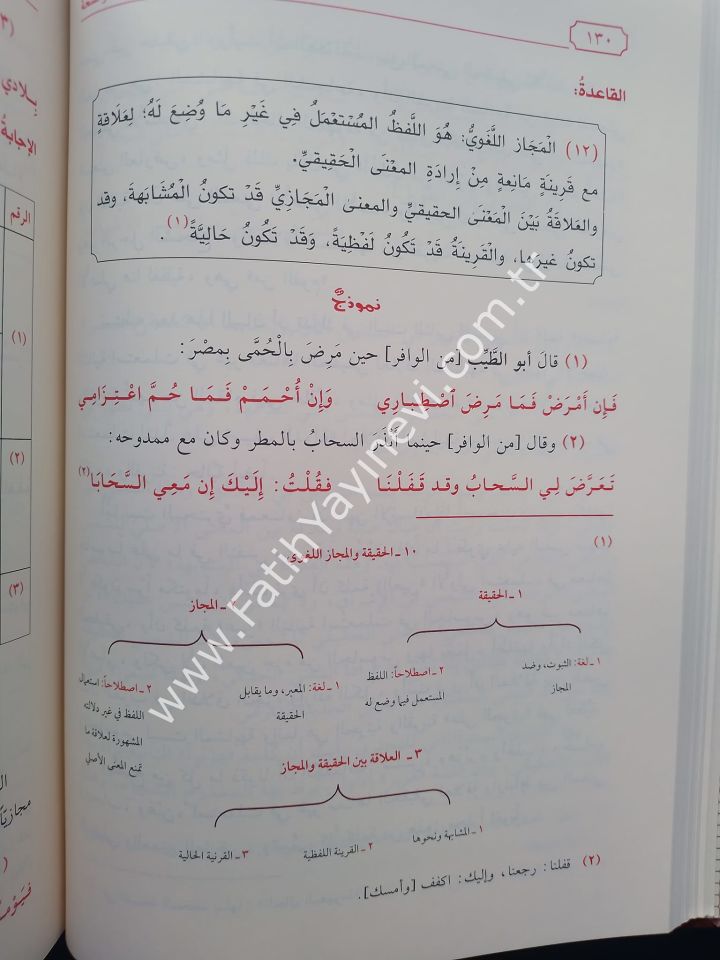 ١٣٠
القاعدةُ:
(١٢) الْمَجَاز اللُّغَوِيُّ: هُوَ اللَّفظُ المُسْتَعْمَلُ فِي غَيْرِ مَا وُضِعَ لَهُ؛ لِعَلَاقةٍ
مع قَرِينَةٍ مَانِعةٍ مِنْ إِرَادَةِ المعْنَى الحَقِيقِيِّ.
والعَلاقَةُ بَيْنَ الْمَعْنَى الحقيقيِّ والمعنى الْمَجَازِيِّ قَدْ تكونُ الْمُشَابَهةَ، وقد
تكونُ غيرها، والْقَرِينَةُ قَدْ تَكُونُ لَفْظِيَةً، وَقَدْ تَكُونُ حَالِيَّةً(١).
نموذجٌ
(١) قالَ أبو الطَّيِّب [من الوافر] حين مَرِضَ بِالْحُمَّى بِمصْرَ:
فَإِن أَمْرَضْ فَمَا مَرِضَ ٱصْطِبارِي وَإِنْ أُحْمَمْ فَمَا حُمَّ اعْتِزَامِي
(٢) وقال [من الوافر] حينما أَنْذَرَ السحابُ بالمطر وكان مع ممدوحه:
تَعَرَّضَ لِي السَّحابُ وقد قَفَلْنَا فقُلْتُ: إِلَيْكَ إِن مَعِي السَّحَابَا(٢)
(١)
١٠ـ الحقيقة والمجاز اللغوى
١ـ الحقيقة
ـ المجاز
١ـ لغة: الثبوت، وضد
المجاز
٢ـ اصطلاحاً: اللفظ
المستعمل فيما وضع له
١ـ لغة: المعبر، وما يقابل
الحقيقة
٢ـ اصطلاحاً: استعمال
اللفظ في غير دلالته
المشهورة لعلاقة ما
تمنع المعنى الأصلي
٣ـ العلاقة بين الحقيقة والمجاز
١ـ المشابهة ونحوها
٢ـ القرينة اللفظية
٣ـ القرنية الحالية
(٢) قفلنا: رجعنا، وإليك: اكفف [وأمسك].
(٣)
بِلادي
الإجابةُ
الرقم
(١)
(٢)
(٣)
www.FatihYayinevi.com.tr